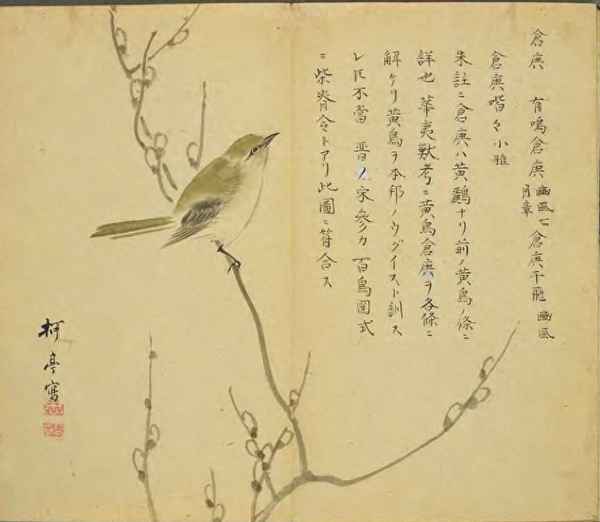 倉庚 有鳴倉庚 豳風七月章 倉庚于飛 豳風
倉庚喈々 小雅
朱註ニ倉庚ハ黄鸝ナリ前ノ黄鳥ノ條ニ
詳也 華夷獸考ニ黄鳥倉庚ヲ各條ニ
解ケリ黄鳥ヲ本邦ノウグイスト訓ス
レ𪜈不當 晋ノ宋參カ百鳥圖式
ニ柴脊令トアリ此圖ニ符合ス
柯亭寫